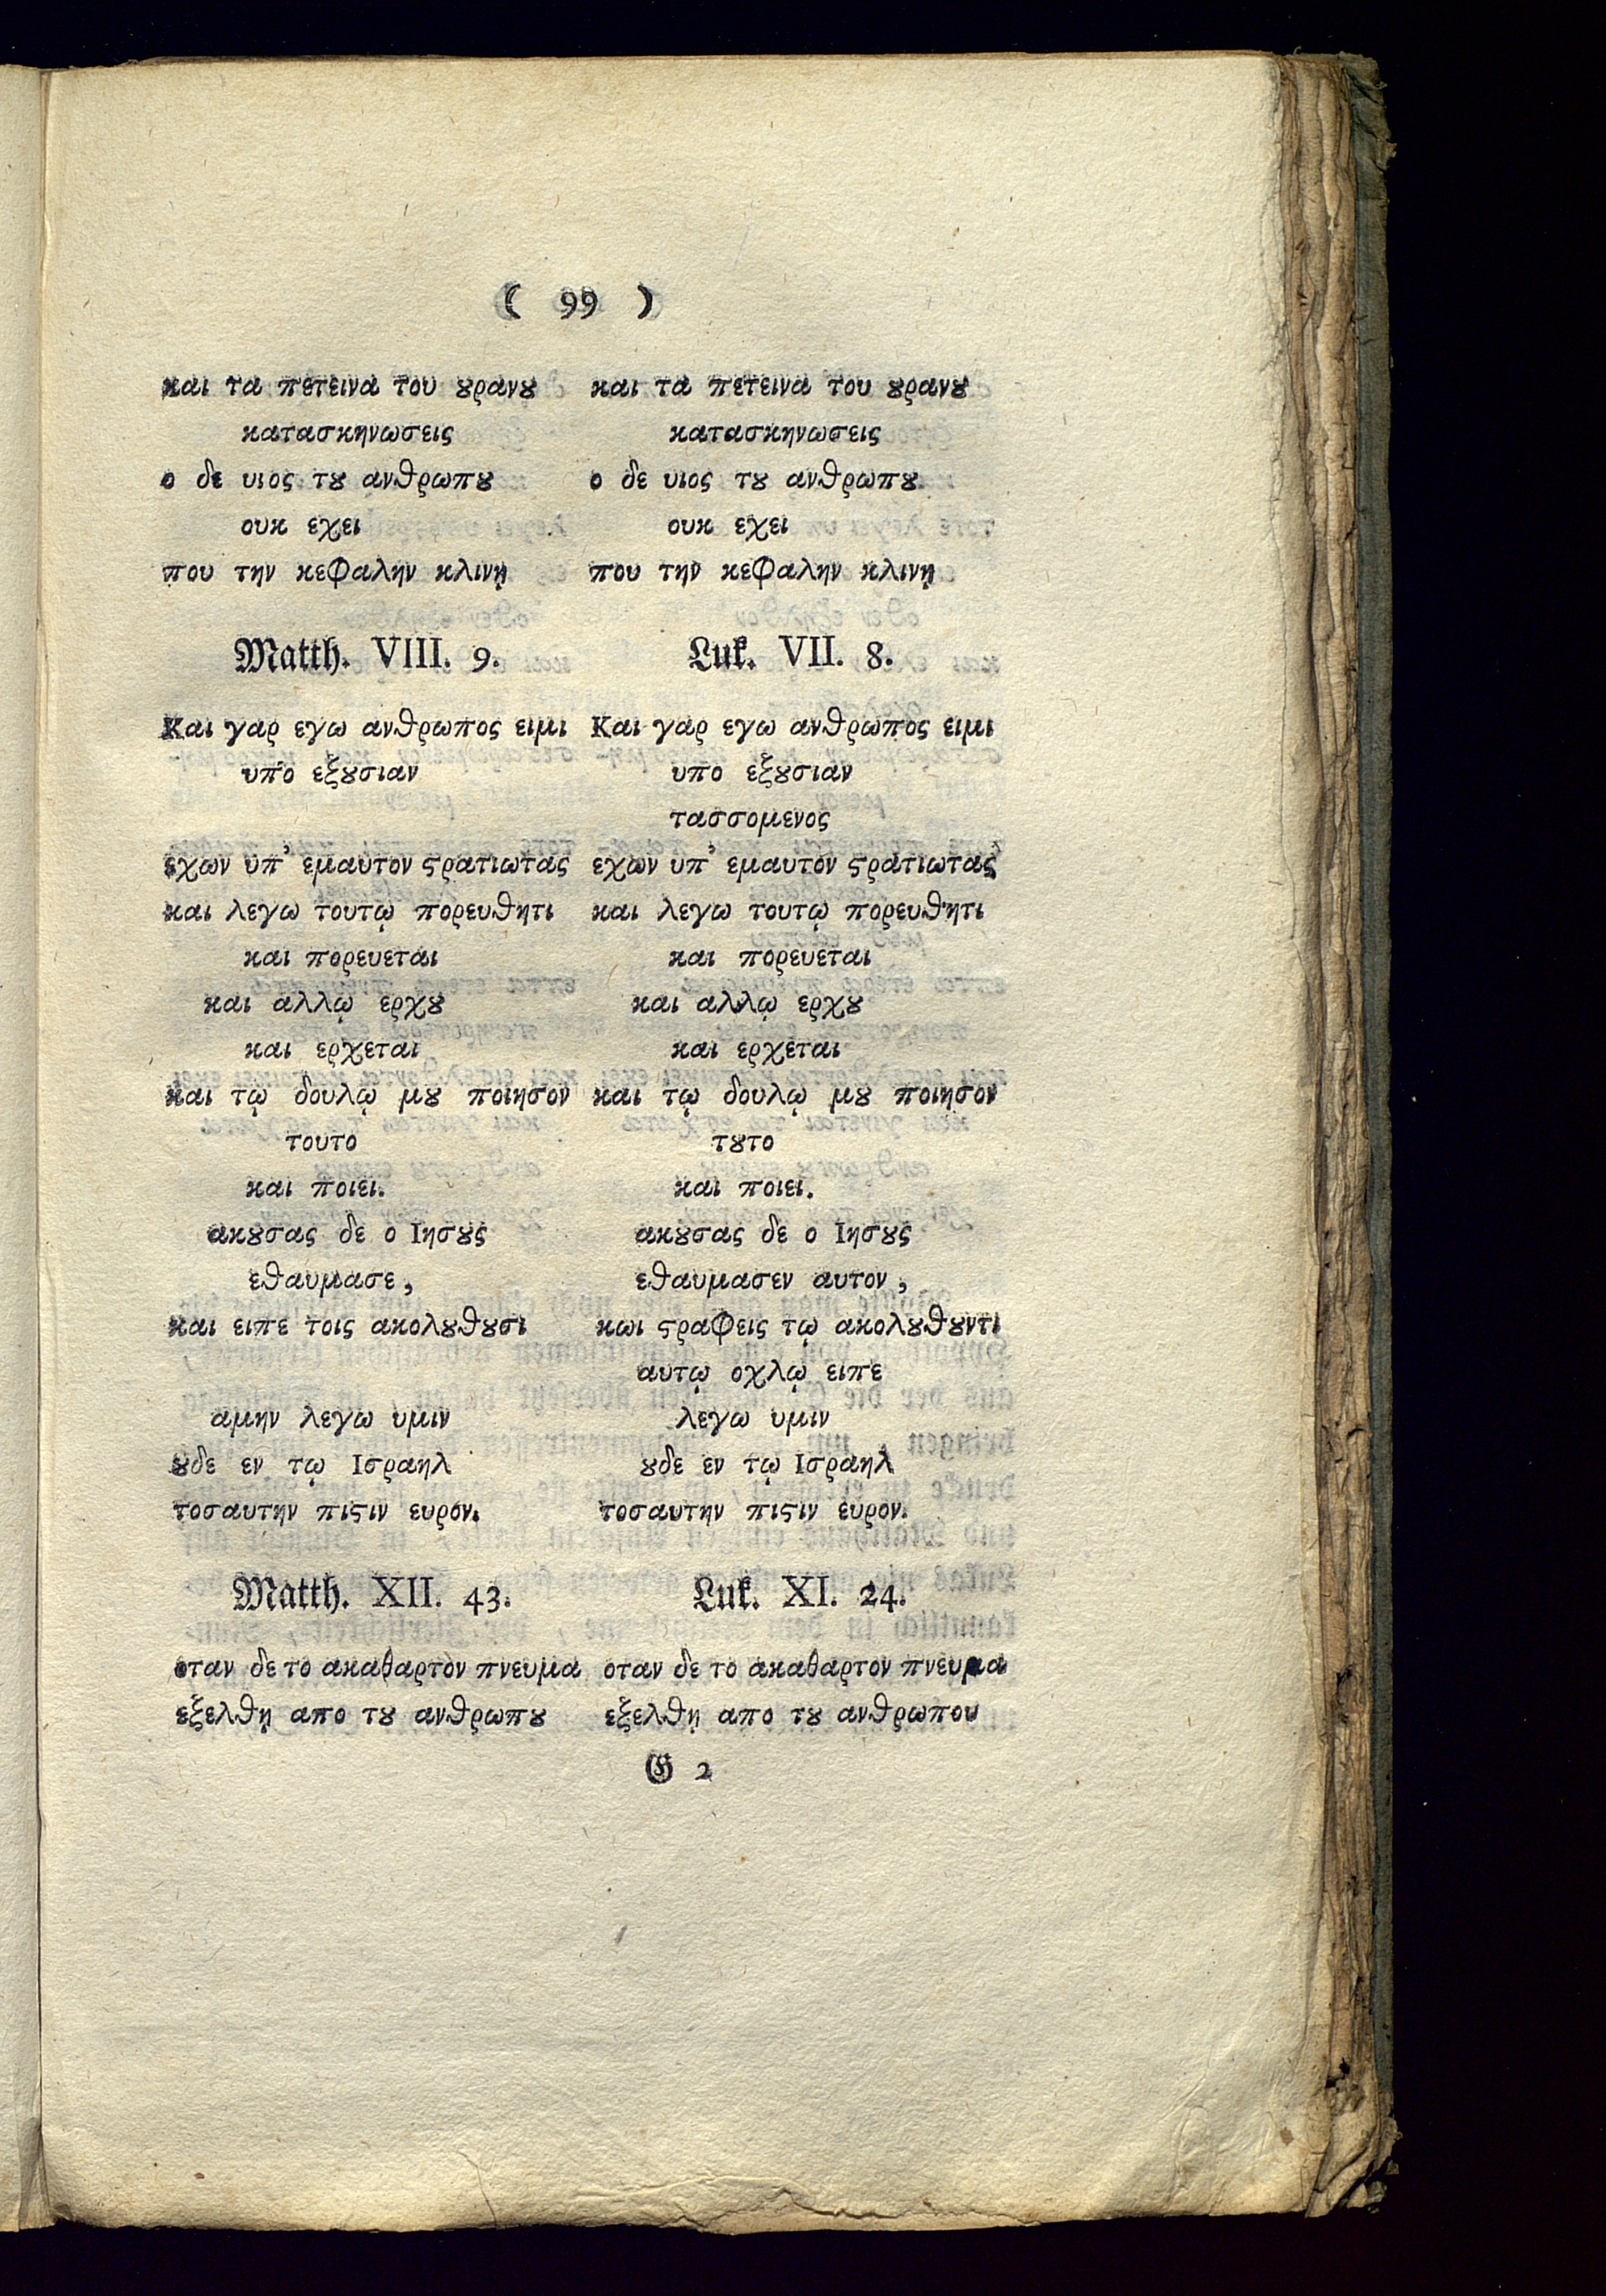 ( 99 )
και τα πετεινα του ȣρανȣ
κατασκηνωσεις
ο δε υιος τȣ ανθρωπȣ
ουκ εχει
που την κεφαλην κλινῃ
και τα πετεινα του ȣρανȣ
κατασκηνωσεις
ο δε υιος τȣ ανθρωπȣ
ουκ εχει
που την κεφαλην κλινῃ
Matth. VIII. 9.
Και γαρ εγω ανθρωπος ειμι
υπο εξȣσιαν
εχων υπ' εμαυτον ϛρατιωτας
και λεγω τουτῳ πορευθητι
και πορευεται
και αλλῳ ερχȣ
και ερχεται
και τῳ δουλῳ μȣ ποιησον
τουτο
και ποιει.
ακȣσας δε ο Ιησȣς
εθαυμασε,
και ειπε τοις ακολȣθȣσι
αμην λεγω υμιν
ȣδε εν τῳ Ισραηλ
τοσαυτην πιϛιν ευρον.
Luk. VII. 8.
Και γαρ εγω ανθρωπος ειμι
υπο εξȣσιαν
τασσομενος
εχων υπ' εμαυτον ϛρατιωτας
και λεγω τουτῳ πορευθητι
και πορευεται
και αλλῳ ερχȣ
και ερχεται
και τῳ δουλῳ μȣ ποιησον
τȣτο
και ποιει.
ακȣσας δε ο Ιησȣς
εθαυμασεν αυτον,
κωι ϛραφεις τῳ ακολȣθȣντι
αυτῳ οχλῳ ειπε
λεγω υμιν
ȣδε εν τῳ Ισραηλ
τοσαυτην πιϛιν ευρον.
Matth. XII. 43.
οταν δε το ακαθαρτον πνευμα
εξελθῃ απο τȣ ανθρωπȣ
Luk. XI. 24.
οταν δε το ακαθαρτον πνευμα
εξελθῃ απο τȣ ανθρωπου
G 2